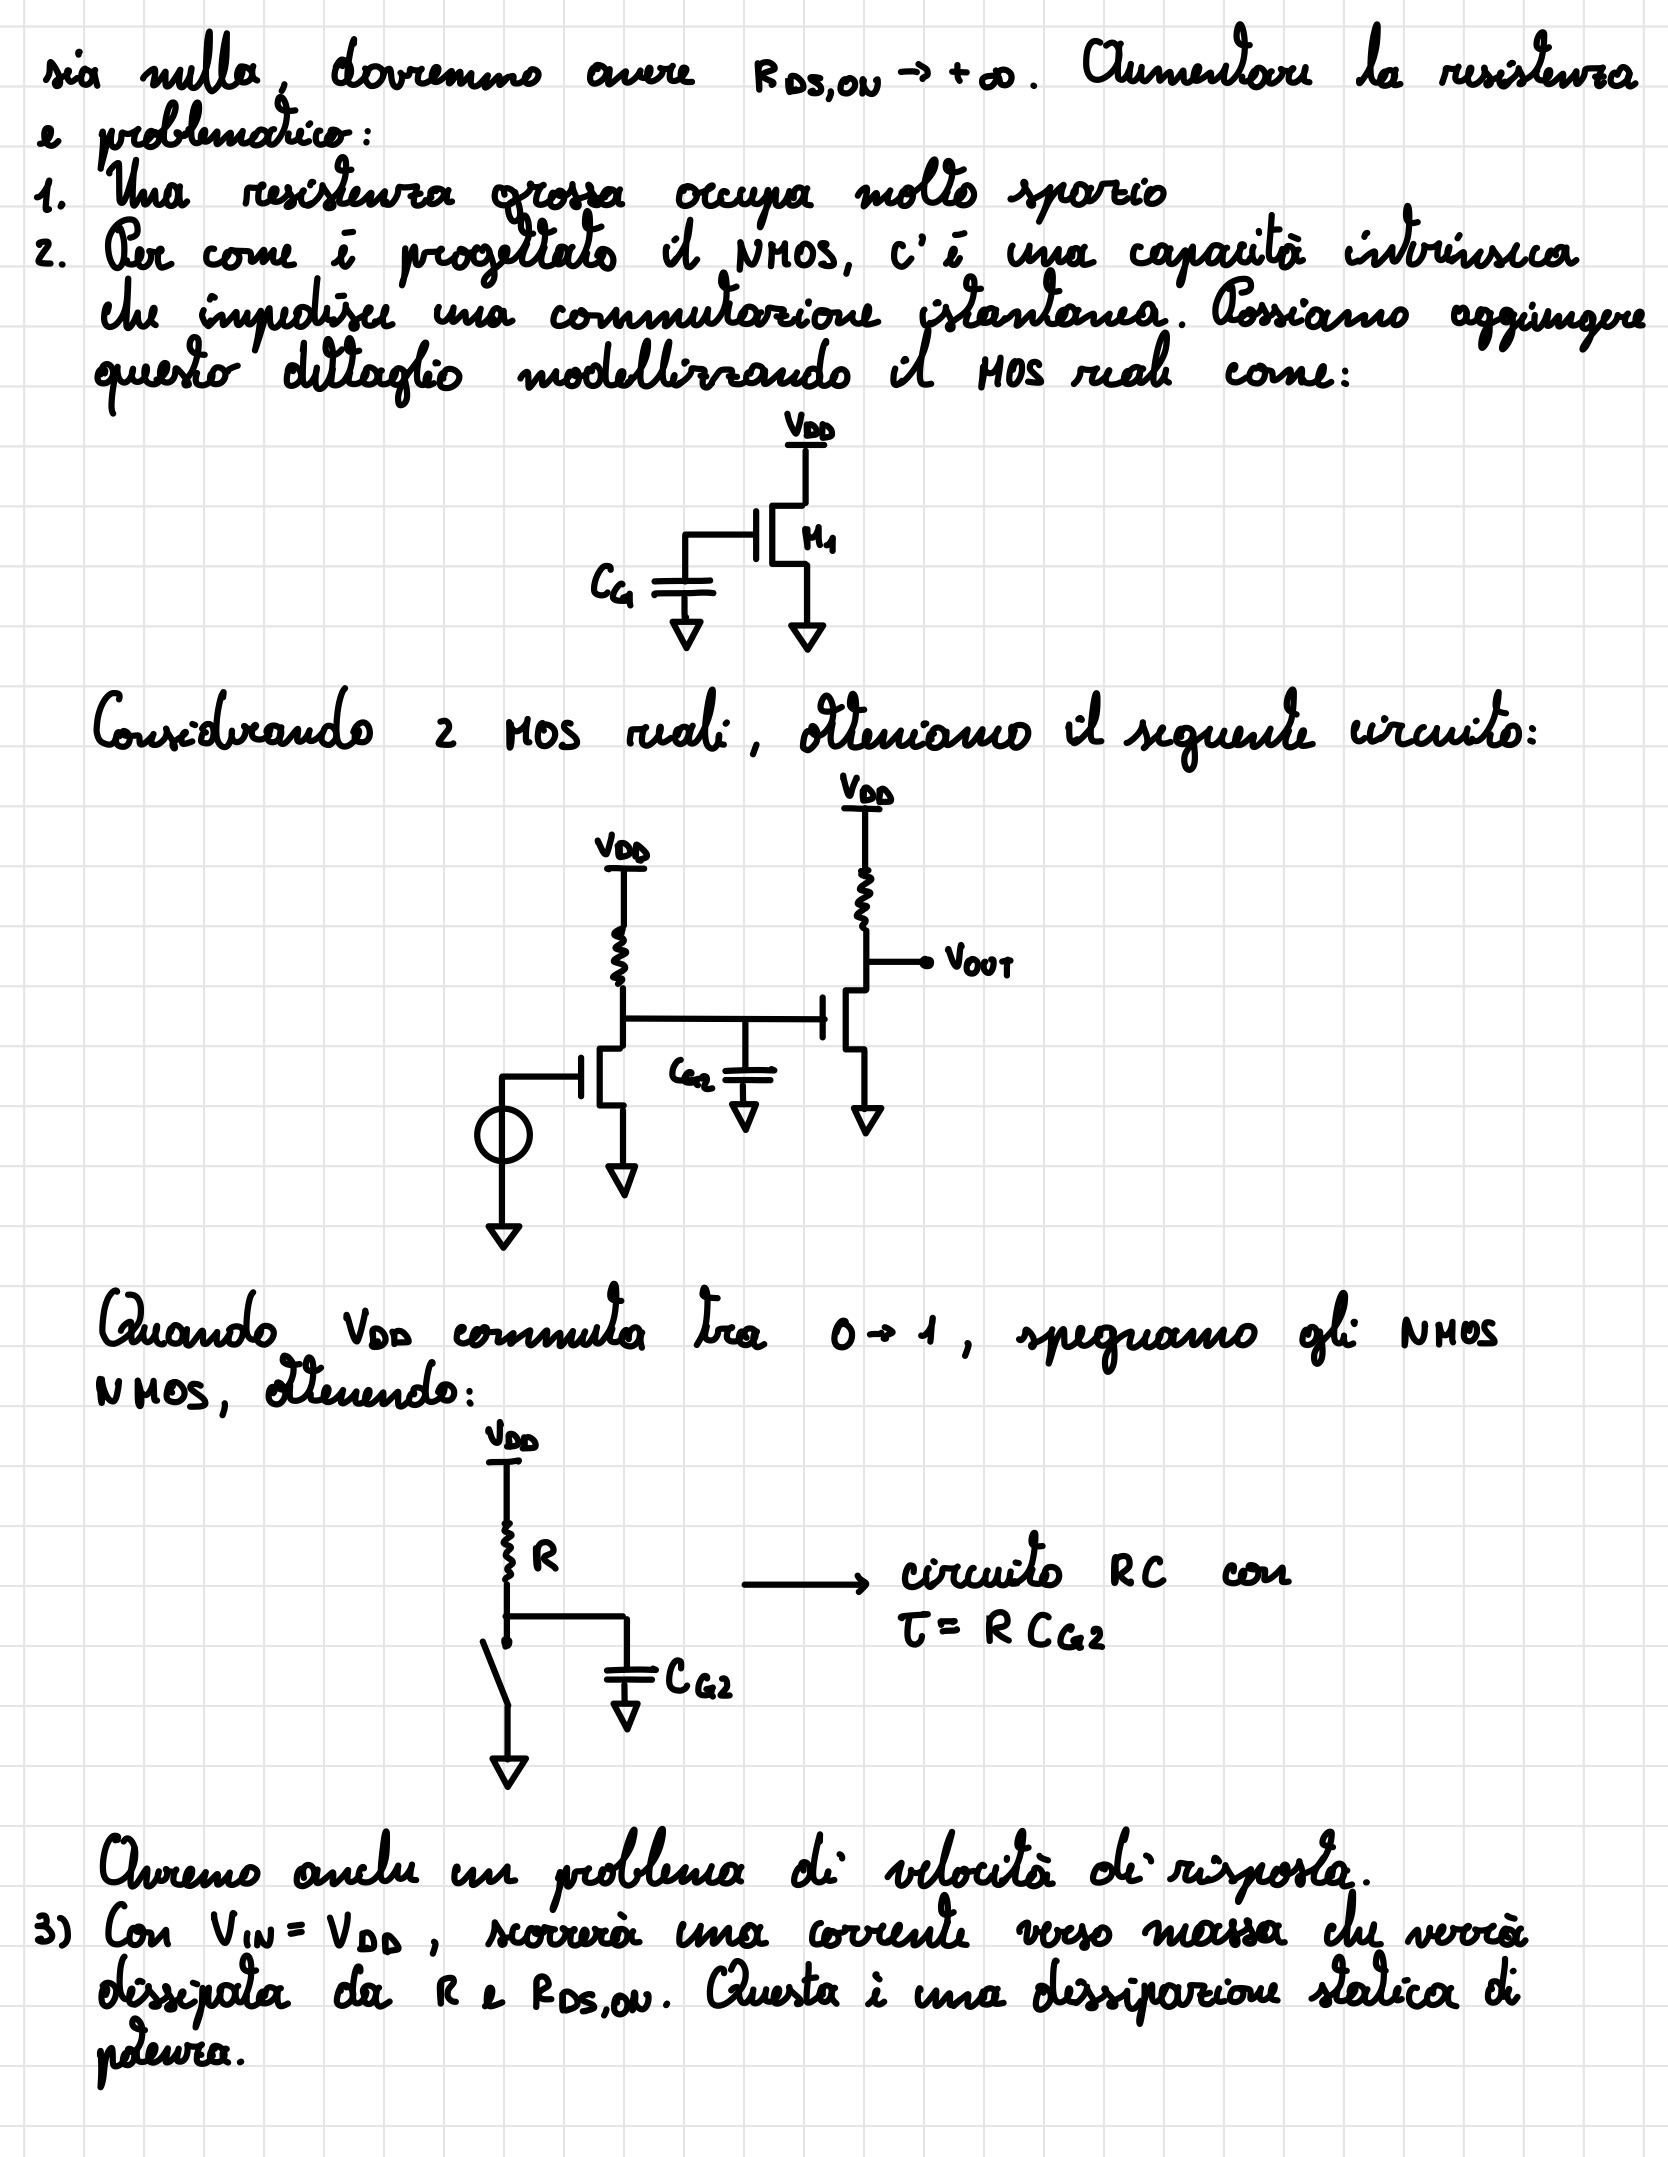 sia nulla, dovremmo avere R DS,ON → +∞. Aumentare la resistenza
è problematico:
1. Una resistenza grossa occupa molto spazio
2. Per come è progettato il NMOS, c'è una capacità intrinseca
che impedisce una commutazione istantanea. Possiamo aggiungere
questo dettaglio modellizzando il MOS reale come:
VDD
M1
CG1
Considerando 2 MOS reali, otteniamo il seguente circuito:
VDD
VDD
VOUT
CG2
Quando VDD commuta tra 0→1, spegniamo gli NMOS
NMOS, ottenendo:
VDD
R
circuito RC con
τ = R CG2
CG2
Avremo anche un problema di velocità di risposta.
3) Con VIN = VDD, scorrerà una corrente verso massa che verrà
dissipata da R e RDS,ON. Questa è una dissipazione statica di
potenza.